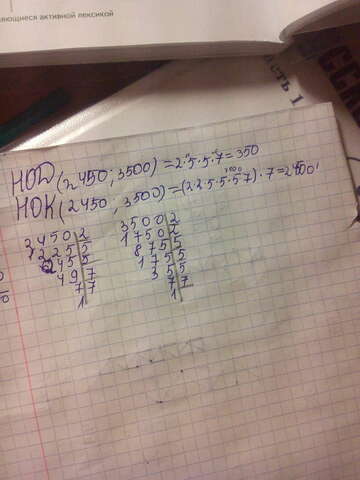 ающиеся активной лексикой
асть 1
НОД (2450; 3500) = 2·5·5·7 = 350
НОК (2450, 3500) = (2·2·5·5·5·7)·7 = 24500
3500
2450 | 2 3500 | 2
1225 | 5 1750 | 2
245 | 5 875 | 5
49 | 7 175 | 5
7 | 7 35 | 5
1 7 | 7
1